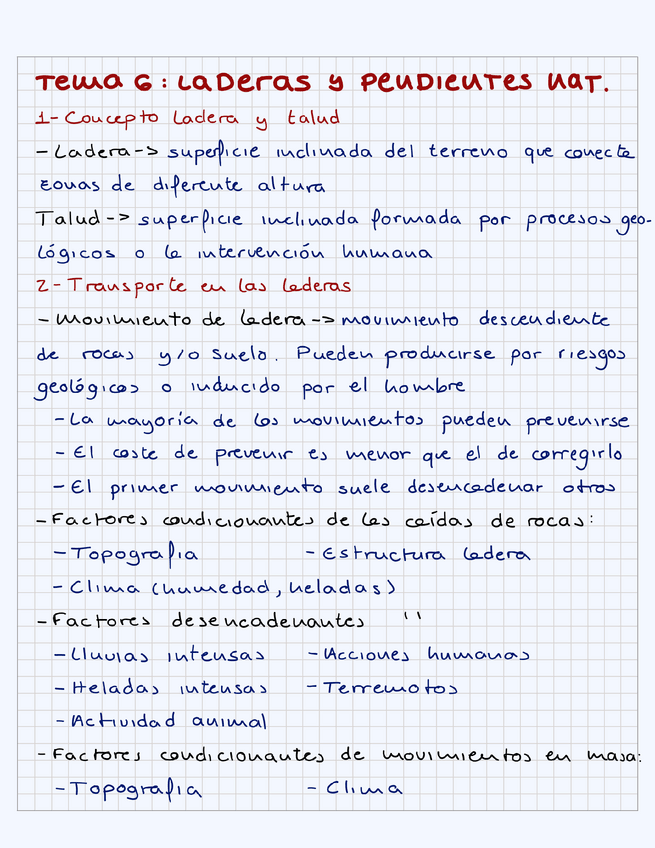 Tema 6: Laderas y pendientes nat.
1- Concepto ladera y talud
- Ladera -> superficie inclinada del terreno que conecte
zonas de diferente altura
Talud -> superficie inclinada formada por procesos geo-
lógicos o la intervención humana
2- Transporte en las laderas
- Movimiento de ladera -> movimiento descendiente
de rocas y/o suelo. Pueden producirse por riesgos
geológicos o inducido por el hombre
- La mayoría de los movimientos pueden prevenirse
- El coste de prevenir es menor que el de corregirlo
- El primer movimiento suele desencadenar otros
- Factores condicionantes de las caídas de rocas:
- Topografia - Estructura ladera
- Clima (humedad, heladas)
- Factores desencadenantes ''
- Lluvias intensas - Acciones humanas
- Heladas intensas - Terremotos
- Actividad animal
- Factores condicionantes de movimientos en masa:
- Topografia - Clima